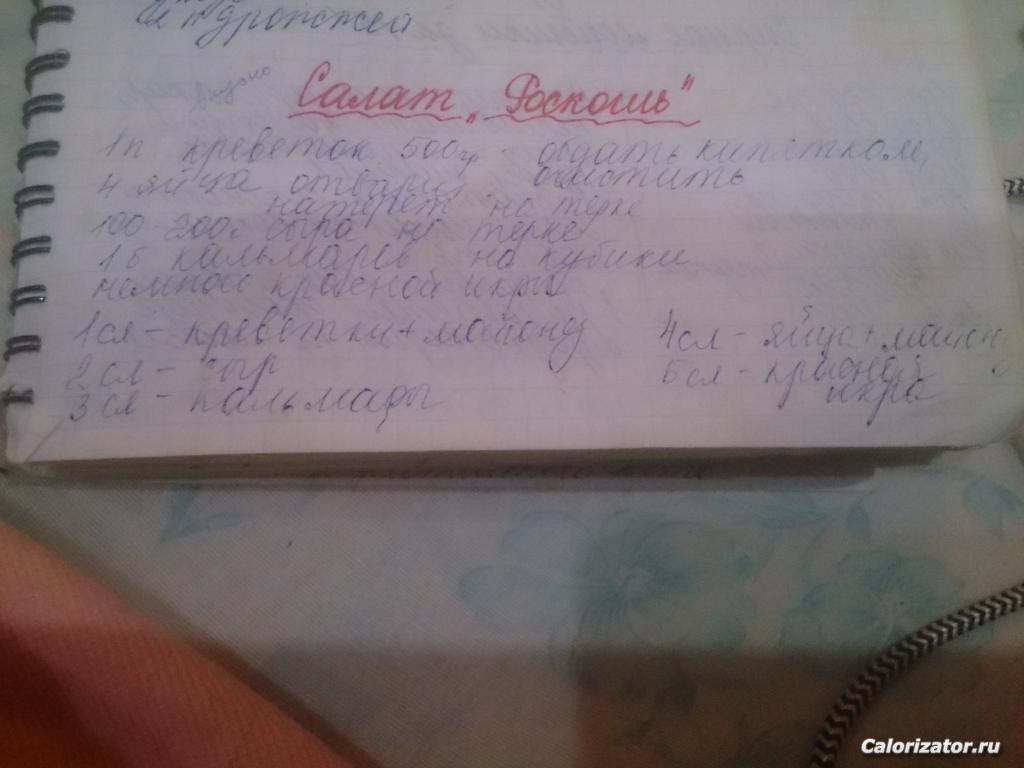 дрожжей
Салат „Роскошь"
1п креветок 500гр - обдать кипятком,
4 яйца отвари очистить
натереть на терке
100-200г сыра на терке
1б кальмаров на кубики
немного красной икры
1сл - креветки + майонез
2сл - сыр
3сл - кальмары
4сл - яйцо + майон
5сл - красной
икра
Calorizator.ru